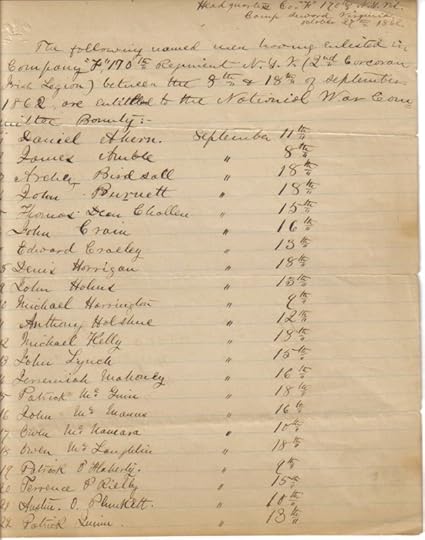 Headquarters Co. "F" 170th N.Y. Vol.
Camp Seward, Virginia
October 27th 1862
The following named men having enlisted in
Company "F", 170th Regiment N.Y.V. (2nd Corcoran
Irish Legion) between the 8th & 18th of September
1862, are entitled to the National War Com
mittee Bounty:-
Daniel Ahern. September 11th
James Amble " 8th
Archer Birdsall " 18th
John Burnett " 18th
Thomas Dean Challen " 15th
John Crain " 16th
Edward Craeley " 13th
Denis Horrigan " 18th
John Holms " 15th
10 Michael Harrington " 9th
Anthony Holshue " 12th
12 Michael Kelly " 18th
13 John Lynch " 15th
Jeremiah Mahoney " 16th
15 Patrick McGuin " 18th
16 John McManus " 16th
17 Owen McNamara " 10th
18 Owen McLaughlin " 18th
19 Patrick O'Flaherty. " 9th
20 Terrence O'Rielly " 15th
21 Austin. O. Plunkett. " 10th
22 Patrick Quinn. " 13th